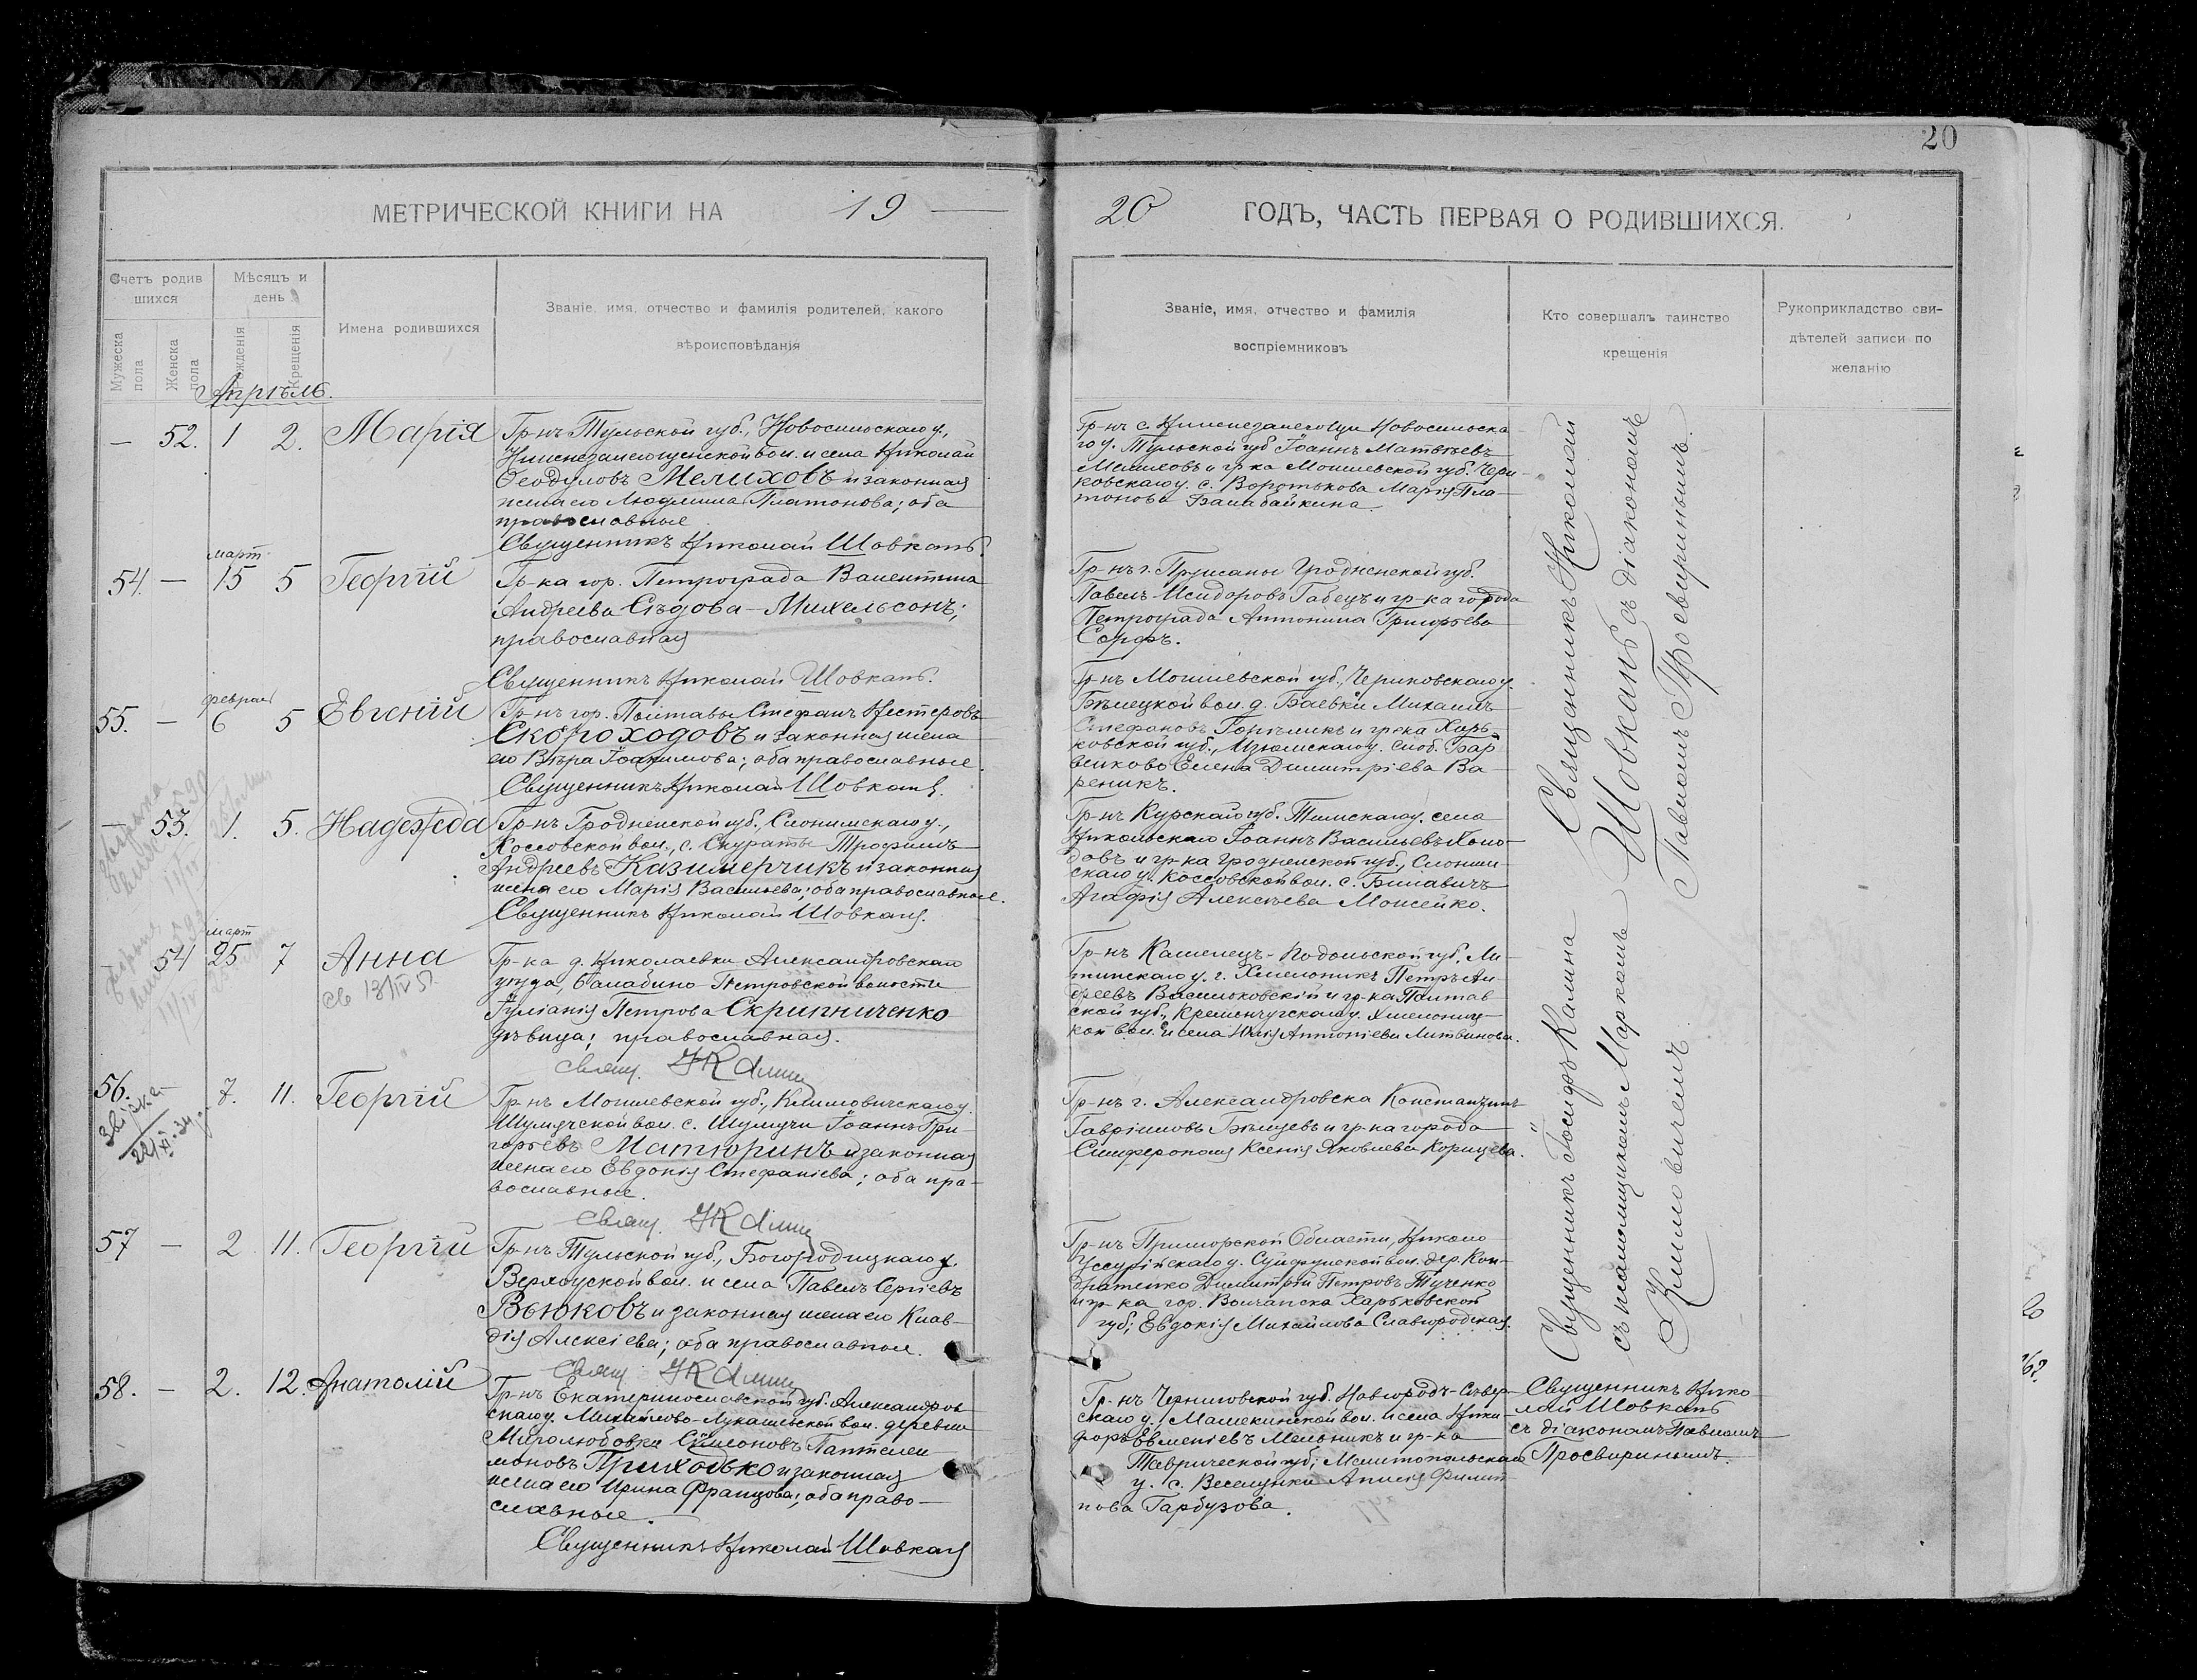 20
МЕТРИЧЕСКОЙ КНИГИ НА 19 —
20 ГОДЪ, ЧАСТЬ ПЕРВАЯ О РОДИВШИХСЯ.
Счетъ родив
шихся
Мужеска
пола
Женска
пола
Мѣсяцъ и
день
Рожденія
Крещенія
Имена родившихся
Званіе, имя, отчество и фамилія родителей, какого
вѣроисповѣданія
Званіе, имя, отчество и фамилія
воспріемниковъ
Кто совершалъ таинство
крещенія
Рукоприкладство сви-
дѣтелей записи по
желанію
Апрѣль.
— 52. 1 2. Марія
Гр-нъ Тульской губ., Новосильскаго у.,
вол. и села Николай
Ѳеодуловъ Мелиховъ и законная
жена его Людмила Платонова; оба
православные
Священникъ Николай Шовкань.
Гр-нъ с. Новосильска-
го у. Тульской губ Іоаннъ Матвѣевъ
Мелиховъ и гр-ка Могилевской губ. Чери-
ковскаго у. с. Воротькова Марія Пла-
тонова Балабайкина.
март
54. — 15 5 Георгій
Гр-ка гор. Петрограда Валентина
Андреева Сѣдова-Михельсонъ;
православная
Священникъ Николай Шовкань.
Гр-нъ г. Пружаны Гродненской губ.
Павелъ Исидоровъ Габецъ и гр-ка города
Петрограда Антонина Григорьева
Сорфъ.
феврал
55. — 6 5 Евгеній
Гр-нъ гор. Полтавы Стефанъ Нестеровъ
Скороходовъ и законная жена
его Вѣра Іоакимова; оба православные.
Священникъ Николай Шовкань.
Гр-нъ Могилевской губ., Чериковскаго у.
Бѣлецкой вол. д. Баевки Михаилъ
Стефановъ и гр-ка Харь-
ковской губ., Изюмскаго у. слоб. Бар
венково Елена Димитріева Ва-
реникъ.
— 53. 1. 5. Надежда
Гр-нъ Гродненской губ., Слонимскаго у.,
Коссовской вол., с. Скураты Трофимъ
Андреевъ Казимерчикъ и законная
жена его Марія Васильева; оба православные.
Священникъ Николай Шовкань.
Гр-нъ Курской губ. Тимскаго у. села
Никольскаго Іоаннъ Васильевъ Холо-
довъ и гр-ка Гродненской губ., Слоним-
скаго у. Коссовской вол. с. Билавичъ
Агафія Алексѣева Мойсейко.
март
54 25 7 Анна
св 13/IV 51.
Гр-ка д. Николаевки Александровскаго
уѣзда, Балабино-Петровской волости
Іуліанія Петрова Скрипниченко
дѣвица; православная.
свящ. ІКалин
Гр-нъ Каменецъ-Подольской губ. Ли-
тинскаго у. г. Хмельникъ Петръ Ан-
дреевъ Васильковскій и гр-ка Полтав
ской губ., Кременчугскаго у.
кой вол. и села Юлія Антоніева Литвинова.
56. — 7. 11. Георгій
Гр-нъ Могилевской губ., Климовичскаго у.
Шумячской вол. с. Шумячи Іоаннъ Гри-
горьевъ Матюринъ и законная
жена его Евдокія Стефаніева; оба пра-
вославные.
свящ. ІКалин
Гр-нъ г. Александровска Константинъ
Гавріиловъ Бѣлцевъ и гр-ка города
Симферополя Ксенія Яковлева Корицева.
57 — 2 11. Георгій
Гр-нъ Тульской губ., Богородицкаго у.
Верхоуской вол. и села Павелъ Сергіевъ
Вьюковъ и законная жена его Клав-
дія Алексіева; оба православные.
Свящ ІКалин
Гр-нъ Приморской Области, Николо
Уссурійскаго у. Суйфунской вол. дер. Кон-
дратенко Димитрій Петровъ Тученко
и гр-ка гор. Волчанска Харьковской
губ; Евдокія Михайлова Славгородская.
58. — 2. 12. Анатолій
Гр-нъ Екатеринославской губ. Александров
скаго у. Михайлово-Лукашевской вол. деревни
Миролюбовки Симеоновъ Пантелеи
моновъ Приходько и законная
жена его Ирина Францова; оба право-
славные.
Священникъ Николай Шовкань
Гр-нъ Черниговской губ. Новгородъ-Сѣвер-
скаго у. Мамекинской вол. и села Ники-
форъ Евменіевъ Мельникъ и гр-ка
Таврической губ; Мелитопольскаго
у. с. Веселянки Филип
пова Гарбузова.
Священникъ Николай
Шовкань съ діакономъ
Павломъ Просвиринымъ.
Священникъ Іосифъ Калина
съ псаломщикомъ Маркомъ
Климовичемъ
Священникъ Нико
лай Шовкань
съ діакономъ Павломъ
Просвиринымъ.